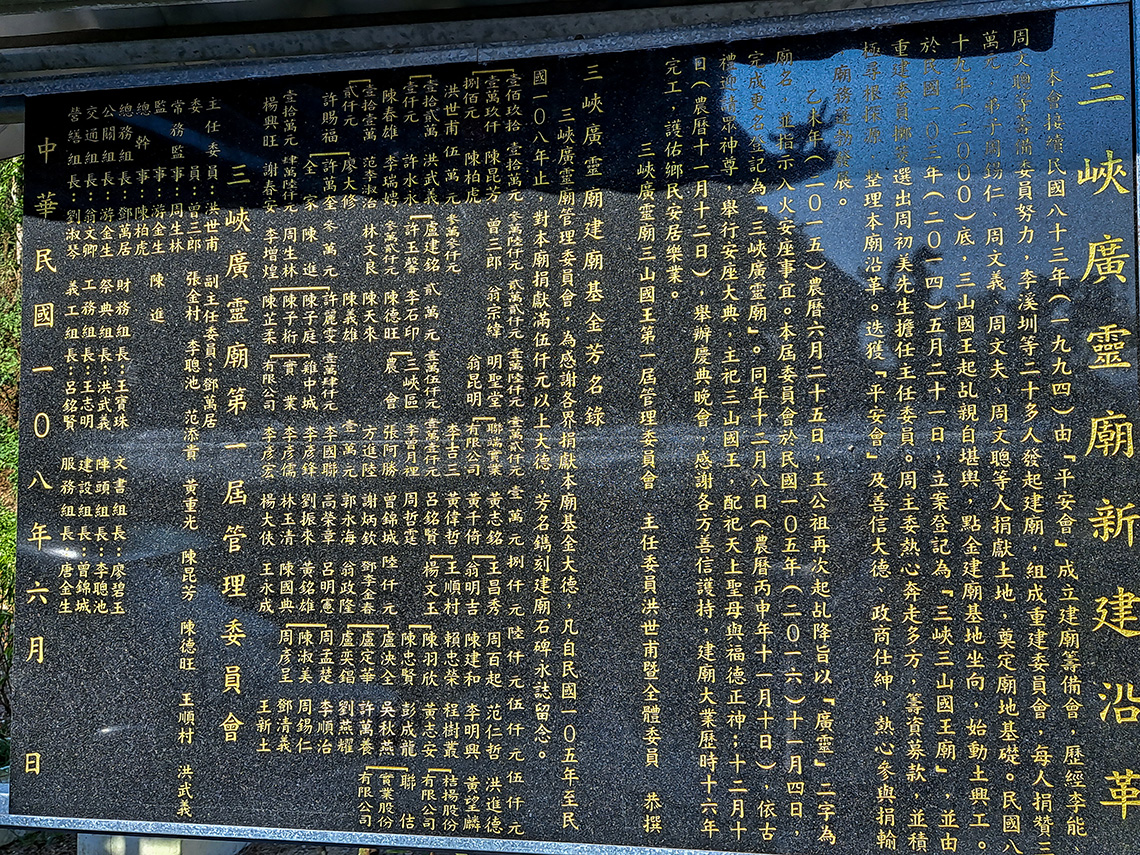 三峽廣靈廟新建沿革
本會接續民國八十三年(一九九四)由「平安會」成立建廟籌備會,歷經李能、
周文聰等籌備委員努力,李溪圳等二十多人發起建廟,組成重建委員會,每人捐贊三
萬元。弟子周錫仁、周文義、周文夫、周文聰等人捐獻土地,奠定廟地基礎。民國八
十九年(二000)底,三山國王起乩親自堪輿,點金建廟基地坐向,始動土興工。
於民國一0三年(二0一四)五月二十一日,立案登記為「三峽三山國王廟」,並由
重建委員擲筊選出周初美先生擔任主任委員。周主委熱心奔走多方,籌資募款,並積
極尋根探源,整理本廟沿革。迭獲「平安會」及善信大德、政商仕紳,熱心參與捐輸
,廟務蓬勃發展。
乙未年(二0一五)農曆六月二十五日,王公祖再次起乩降旨以「廣靈」二字為
廟名,並指示入火安座事宜。本屆委員會於民國一0五年(二0一六)十一月四日,
完成更名登記為「三峽廣靈廟」。同年十二月八日(農曆丙申年十一月十日),依古
禮迎請眾神尊,舉行安座大典,主祀三山國王,配祀天上聖母與福德正神;十二月十
日(農曆十一月十二日),舉辦慶典晚會,感謝各方善信護持,建廟大業歷時十六年
完工,護佑鄉民安居樂業。
三峽廣靈廟三山國王第一屆管理委員會 主任委員洪世甫暨全體委員 恭撰
三峽廣靈廟建廟基金芳名錄
三峽廣靈廟管理委員會,為感謝各界捐獻本廟基金大德,凡自民國一0五年至民
國一0八年止,對本廟捐獻滿伍仟元以上大德,芳名鐫刻建廟石碑永誌留念。
壹佰玖拾 壹拾萬元 叁萬陸仟元 貳萬貳仟元 壹萬陸仟元 壹萬貳仟元 壹萬元 捌仟元 陸仟元 伍仟元 伍仟元
壹萬玖仟 陳昆芳 曾三郎 翁宗緯 明聖堂 聯瑞實業 黃志銘 王昌秀 周百起 范仁哲 洪進德
捌佰元 陳柏虎 翁昆明 有限公司 黃千倚 翁明吉 陳建和 李明興 黃望麟
洪世甫 伍萬元 叁萬叁仟元 李吉三 黃偉哲 王順村 賴忠榮 程樹叢 桔揚股份
壹拾貳萬 洪武義 盧建銘 貳萬元 壹萬伍仟元 壹萬壹仟元 呂銘賢 楊文玉 陳羽欣 黃志安 有限公司
壹仟元 許永永 許玉馨 李石印 三峽區 李曾月裡 周哲霆 陳忠賢 彭成龍 聯佶
陳春雄 李瑞嫦 叁萬貳仟元 陳德旺 農會 張阿勝 曾錦城 陸仟元 盧泱全 吳秋燕 實業股份
壹拾壹萬 范李淑治 林文良 陳天來 方進陸 謝炳欽 鄧李金春 盧定華 許萬養 有限公司
貳仟元 廖大修 陳義雄 壹萬元 郭永海 翁政隆 盧奕錩 劉燕耀
許賜福 許萬全 叁萬元 許麗雯 壹萬肆仟元 李國聯 高榮章 呂明憲 周孟楚 李順治
全家 陳進 陳子庭 雞中城 李彥鋒 劉振來 黃銘雄 陳淑美 周錫仁
壹拾萬元 肆萬陸仟元 周生林 陳子術 實業 李彥儒 林玉清 陳國典 周彥呈 鄧清義
楊興旺 謝春安 李增煌 陳芷柔 有限公司 李彥宏 楊大俠 王永成 王新土
三峽廣靈廟第一屆管理委員會
主任委員:洪世甫 副主任委員:鄧萬居
委員:曾三郎 張金村 李聰池 范添貴 黃重光 陳昆芳 陳德旺 王順村 洪武義
常務監事:周生林
監事:游金生 陳進
總幹事:陳柏虎
總務組長:鄧萬居 財務組長:王寶珠 文書組長:廖碧玉
公關組長:游金生 祭典組長:洪武義 陣頭組長:李聰池
交通組長:翁文卿 工務組長:王志明 建設組長:曾錦城
營繕組長:劉淑琴 義工組長:呂銘賢 服務組長:唐金生
中華民國一0八年六月 日